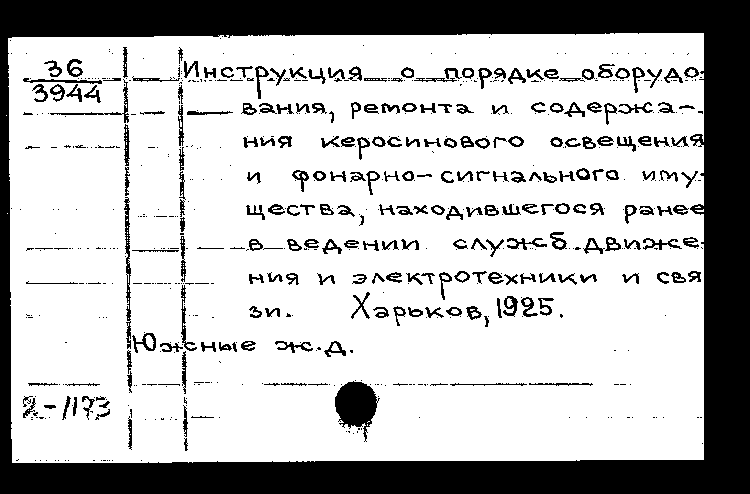 36
3944
Инструкция о порядке оборудо-
вания, ремонта и содержа-
ния керосинового освещения
и фонарно-сигнального иму-
щества, находившегося ранее
в ведении служб движе-
ния и электротехники и свя
зи. Харьков, 1925.
Южные ж.д.
2-1173